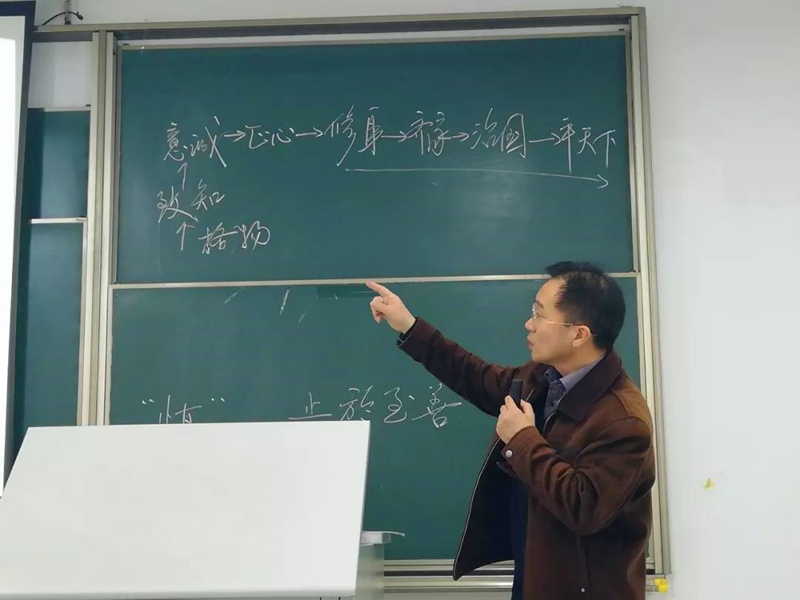 意诚→正心→修身→齐家→治国→平天下
↑
致知
↑格物
止於至善